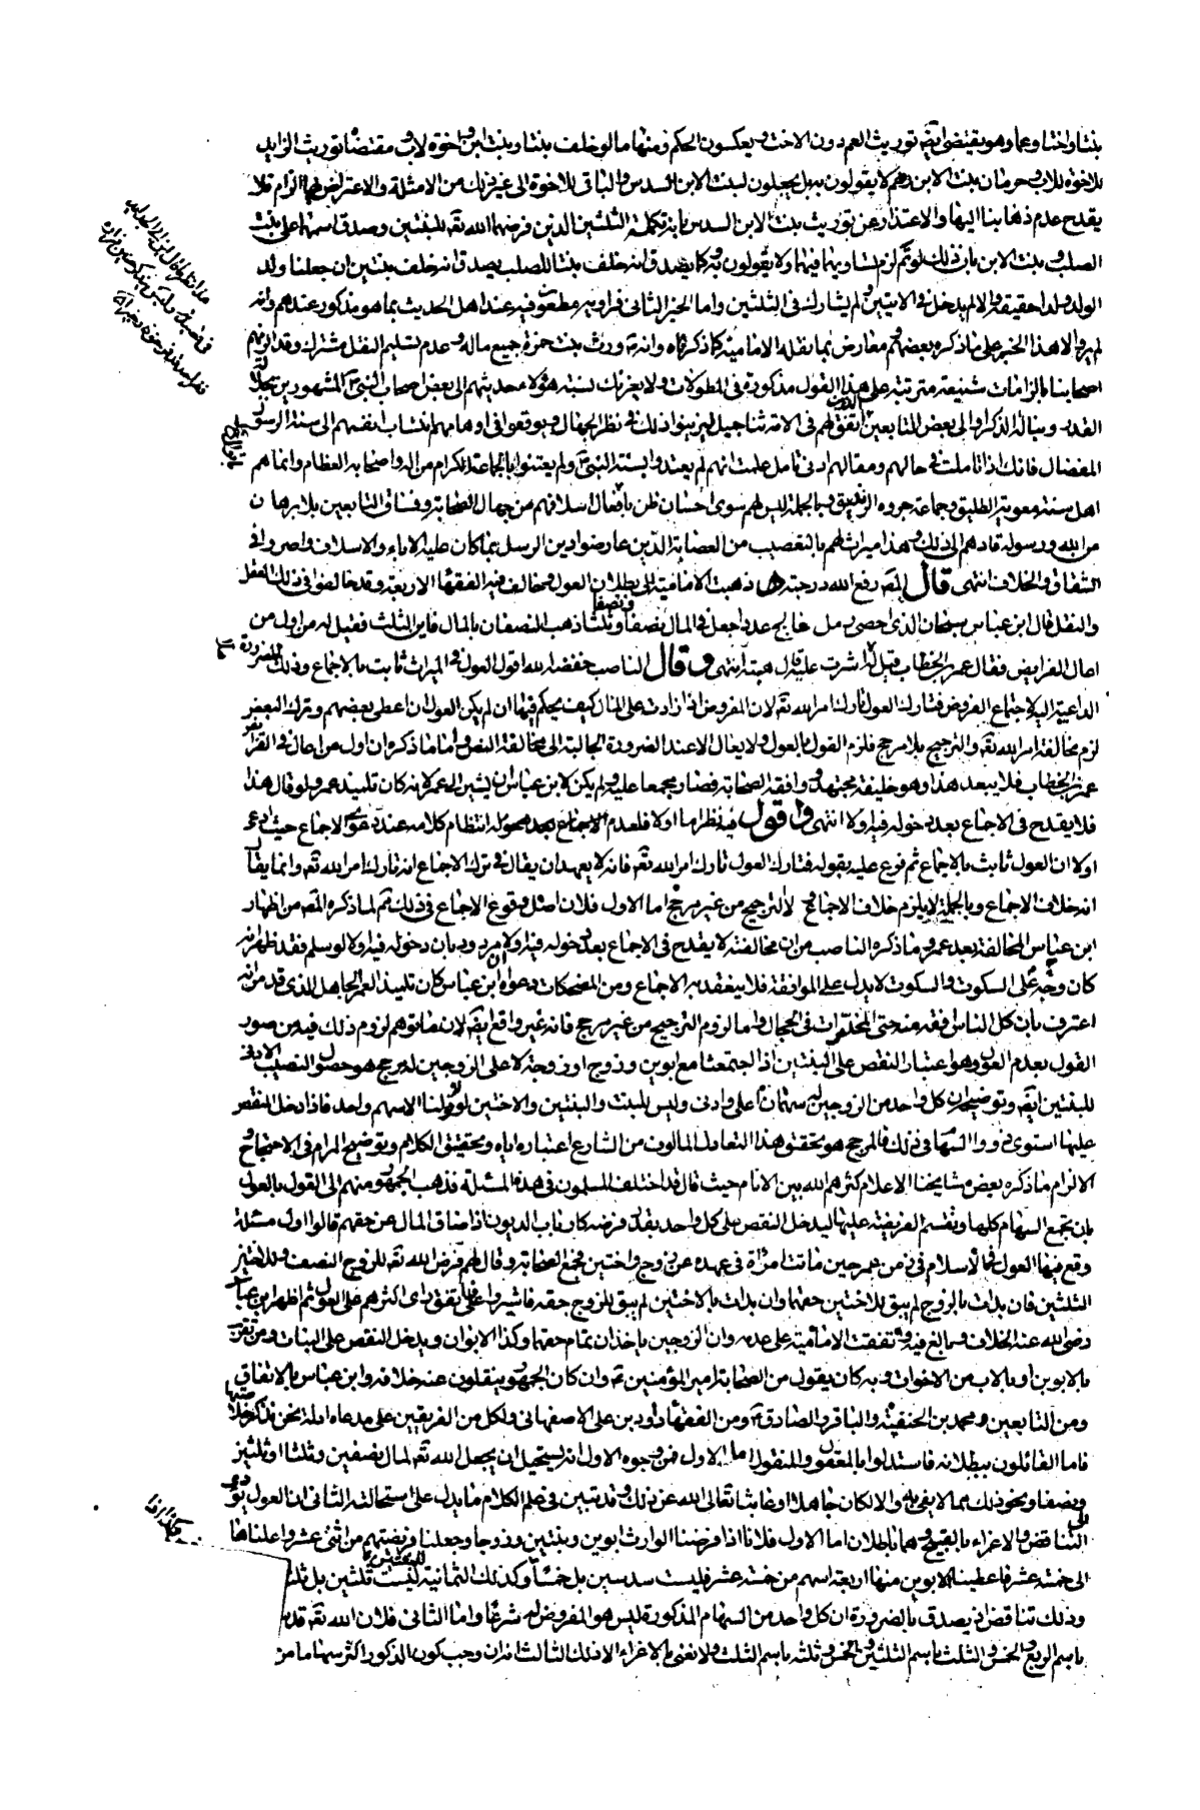 بنتا واختا وعما وهو يقتضى ايضا توريث العم دون الاخت ويعكسون الحكم ومنها ما لو خلف بنتا وبنت ابن واخوة لاب مقتضاه توريث الزايد
للاخوة للاب وحرمان بنت الابن وهم لا يقولون به بل يجعلون لبنت الابن السدس والباقى للاخوة الى غير ذلك من الامثلة والاعتراض بها الزام فلا
يقدح عدم ذهابنا اليها والاعتذار عن توريث بنت الابن السدس بانه تكملة الثلثين الذين فرضهما الله تعه للبنتين وصدق اسمها على بنت
الصلب وبنت الابن بان ذلك لو تم لزم تساويهما فيهما ولا يقولون به وكما يصدق انه خلف بنتا للصلب يصدق انه خلف بنتين ان جعلنا ولد
الولد ولدا حقيقة والا لم يدخل فى الايتين ولم يشارك فى الثلثين واما الخبر الثانى فراويه مطعون فيه عند اهل الحديث بما هو مذكور عندهم وانه
لم يرو الا هذا الخبر على ما ذكره بعضهم ومعارض بما نقله الامامية كما ذكرناه وانه ص ورث بنت حمزة جميع ماله وعدم تسليم النقل مشترك وقد الزمهم
اصحابنا بالزامات شنيعة مترتبة على هذا القول مذكورة فى المطولات ولا يغرنك نسبة هؤلاء محدثيهم الى بعض اصحاب النبى ص المشهورين بجلالة
القدر ونباله الذكر او الى بعض التابعين الذين اتفق لهم فى الامة ثناء جميل ليزينوا ذلك فى نظر الجهال ويوقعوا فى اوهامهم انتساب انفسهم الى سنة الرسول
المفضال فانك اذا تاملت فى حالهم ومقالهم ادنى تامل علمت انهم لم يعتدوا بسنة النبى ص ولم يعتنوا بالجماعة الكرام من اله واصحابه العظام وانما هم
اهل سنة معوية الطليق وجماعة جروه الزنديق وبالجملة ليس لهم سوى احسان ظن بافعال اسلافهم من جهال الصحابة وفساق التابعين بلا برهان
من الله ورسوله قادهم الى ذلك وهذا ميراث لهم بالتعصيب من العصابة الذين عارضوا دين الرسل بما كان عليه الاباء والاسلاف واصروا فى
الشقاق والخلاف انتهى قال المصه رفع الله درجته ذهبت الامامية الى بطلان العول وخالف فيه الفقها الاربعة وقد خالفوا فى ذلك العقل
والنقل قال ابن عباس سبحان الذى احصى رمل عالج عددا جعل فى المال نصفا ونصفا وثلثا ذهب النصفان بالمال فاين الثلث فقيل له من اول من
اعال الفرايض فقال عمر بن الخطاب قيل له هلا اشرت عليه قال هبته انتهى وقال الناصب خفضه الله اقول العول فى الميراث ثابت بالاجماع وذلك للضرورة
الداعية اليه لاجتماع الفروض فتارك العول تارك امر الله تعه لان المفروض اذا زادت على المال كيف يحكم فيها ان لم يكن العول ان اعطى بعضهم وترك البعض
لزم مخالفة امر الله تعه والترجيح بلا مرجح فلزم القول بالعول ولا يعال الا عند الضرورة الجالبة الى مخالفة النص واما ما ذكره ان اول من اعال فى الفرايض
عمر بن الخطاب فلا يبعد هذا وهو خليفة مجتهد وافقه الصحابة فصار مجمعا عليه ولم يكن لابن عباس ان يشير الى عمر لانه كان تلميذ عمر ولو قال هذا
فلا يقدح فى الاجماع بعد دخوله فيه اولا انتهى واقول فيه نظر اما اولا فلعدم انتظام كلامه عند دعوى الاجماع حيث ادعى
اولا ان العول ثابت بالاجماع ثم فرع عليه بقوله فتارك العول تارك امر الله تعه فانه لا يعهد ان يقال فى ترك الاجماع انه تارك امر الله تعه وانما يقال
انه خلاف الاجماع وبالجملة لا يلزم خلاف الاجماع ولا الترجيح من غير مرجح اما الاول فلان اصل وقوع الاجماع فى ذلك ثم لما ذكره المصه من اظهار
ابن عباس المخالفة بعد عمر وما ذكره الناصب من ان مخالفته لا يقدح فى الاجماع بعد دخوله فيه اولا مردود بان دخوله فيه اولا لو سلم فقد ظهر انه
كان وجه على السكوت والسكوت لا يدل على الموافقة فلا ينعقد به الاجماع ومن المضحكات دعواه ان ابن عباس كان تلميذ العمر الجاهل الذى قد مر انه
اعترف بان كل الناس افقه منه حتى المخدرات فى الحجال واما لزوم الترجيح من غير مرجح فانه غير واقع ايضا لان ما توهم لزوم ذلك فيه من صور
القول بعدم العول وهو اعتبار النقص على البنتين اذا اجتمعتا مع ابوين وزوج او زوجة لا على الزوجين لمرجح هو حصول النصيب الادنى
للبنتين ايضا وتوضيحه ان كل واحد من الزوجين له سهمان اعلى وادنى وليس للبنت والبنتين والاختين لو لا الاسهم واحد فاذا دخل النقص
عليهما استوى ذووا السهام فى ذلك فالمرجح هو تحقق هذا التعادل المالوف من الشارع اعتباره اياه وتحقيق الكلام وتوضيح المرام فى الاحتجاج
الالزام ما ذكره بعض مشايخنا الاعلام كثرهم الله بين الانام حيث قال قد اختلف المسلمون فى هذه المسئلة فذهب الجمهور منهم الى القول بالعول
بان تجمع السهام كلها وتقسم الفريضة عليها ليدخل النقص على كل واحد بقدر فرضه كارباب الديون اذا ضاق المال عن حقهم قالوا اول مسئلة
وقع فيها العول فى الاسلام فى زمن عمر حين ماتت امراة فى عهده عن زوج واختين فجمع الصحابة وقال لهم فرض الله تعه للزوج النصف وللاختين
الثلثين فان بدات بالزوج لم يبق للاختين حقهما وان بدات بالاختين لم يبق للزوج حقه فاشيروا على فاتفق راى اكثرهم على العول ثم اظهر ابن عباس
رضى الله عنه الخلاف وبالغ فيه واتفقت الامامية على عدمه وان الزوجين ياخذان تمام حقهما وكذا الابوان ويدخل النقص على البنات ومن تقرب
بالابوين او بالاب من الاخوات وبه كان يقول من الصحابة امير المؤمنين ع وان كان الجمهور ينقلون عنه خلافه وابن عباس بالاتفاق
ومن التابعين محمد بن الحنفية والباقر والصادق ع ومن الفقها داود بن على الاصفهانى ولكل من الفريقين على مدعاه ادلة نحن نذكر خلاصتها
فاما القائلون ببطلانه فاستدلوا بالمعقول والمنقول اما الاول فمن وجوه الاول انه يستحيل ان يجعل الله تعه لمال نصفين وثلثا او ثلثين
ونصفا ونحو ذلك مما لا يفى به والا لكان جاهلا او عابثا تعالى الله عن ذلك وقد تبين فى علم الكلام ما يدل على استحالته الثانى ان العول يؤدى الى
التناقض والاغراء بالقبيح وهما باطلان اما الاول فلانا اذا فرضنا الوارث ابوين وبنتين وزوجا وجعلنا فريضتهم من اثنى عشر واعلناها
الى خمسة عشر فاعطينا الابوين منها اربعة اسهم من خمسة عشر فليست سدسين بل خمسا وكذلك الثمانية ليست ثلثين بل ثلثا
وذلك تناقض اذ يصدق بالضرورة ان كل واحد من السهام المذكورة ليس هو المفروض له شرعا واما الثانى فلان الله تعه قد
باسم الربع والخمس الثلث باسم الثلثين والخمس وثلثه باسم الثلث ولا نعنى بالاغراء الا ذلك الثالث انه ان وجب كون الذكور اكثر سهاما من